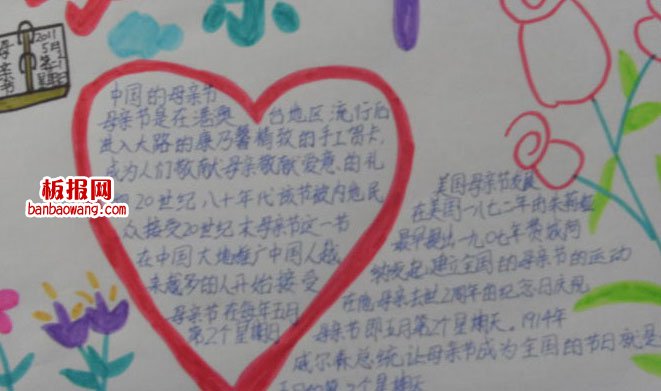 亲
2011
5月
第二个
星期日
母亲节
中国的母亲节
母亲节是在港澳台地区流行后
进入大路的康乃馨精致的手工贺卡,
成为人们敬献母亲敬献爱意的礼
20世纪八十年代该节被内地民
众接受20世纪末母亲节这一节
在中国大地推广中国人越
来越多的人开始接受
母亲节在每年五月
第2个星期日
美国母亲节发展
在美国一八七二年由朱莉娅
最早提出一九〇七年费城
建立全国的母亲节的运动
在他母亲去世2周年的纪念日庆祝
母亲节即五月第2个星期天。1914年
威尔森总统让母亲节成为全国的节日就是
板报网
banbaowang.com